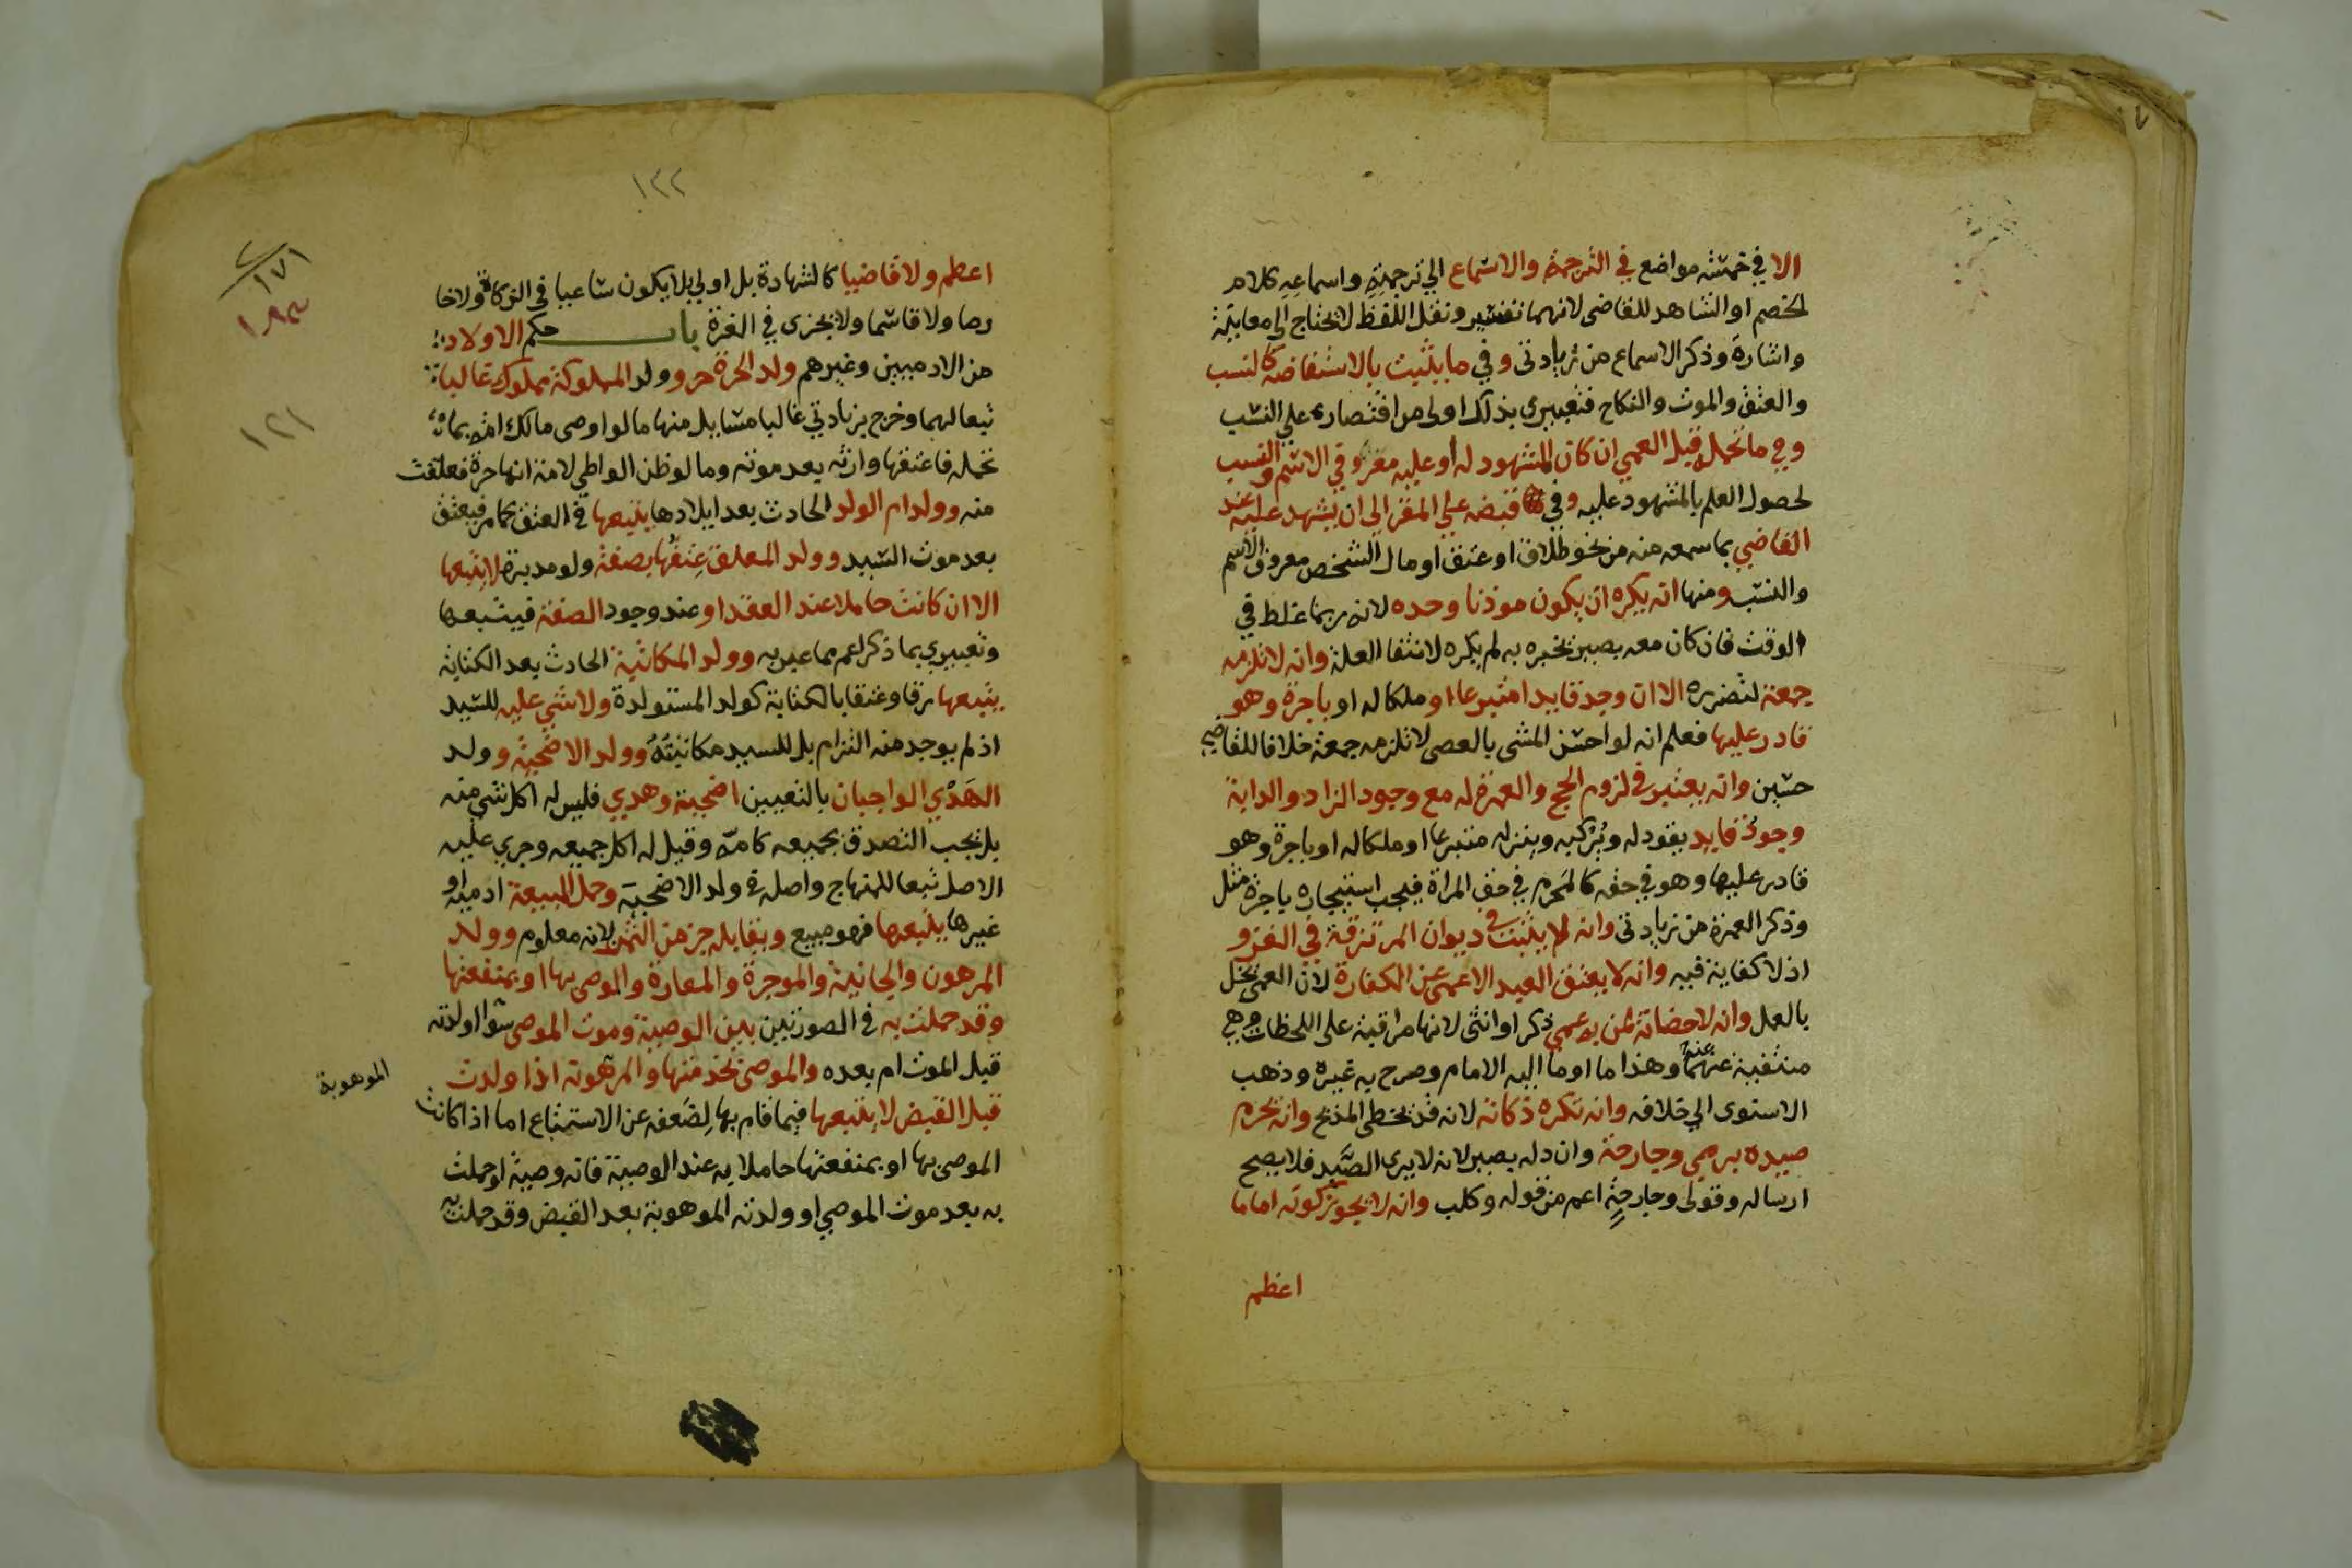 الا في خمسة مواضع في الترجمة والاسماع الي ترجمته واسماعه كلام
الخصم او الشاهد للقاضي لانهما تفسير ونقل اللفظ لا يحتاج الى معاينة
واشارة وذكر الاسماع من زيادتي وفي ما يثبت بالاستفاضة كالنسب
والعتق والموت والنكاح فتعبيري بذلك اولى من اقتصاره علي النسب
وفي ما تحمله قبل العمي ان كان المشهود له او عليه معروفي الاسم والنسب
لحصول العلم بالمشهود عليه وفي قبضه علي المقر الى ان يشهد عليه عند
القاضي بما سمعه منه من نحو طلاق او عتق او مال لشخص معروف الاسم
والنسب ومنها انه يكره ان يكون موذنا وحده لانه ربما غلط في
الوقت فان كان معه بصير يخبره به لم يكره لانتفا العلة وانه لا تلزمه
جمعة لتضرره الا ان وجد قايدا متبرعا او ملكا له او باجرة وهو
قادر عليها فعلم انه لو احسن المشى بالعصى لا تلزمه جمعة خلافا للقاضي
حسين وانه يعتبر في لزوم الحج والعمرة له مع وجود الزاد والدابة
وجود قايد يقود له ويركبه وينزله متبرعا او ملكا له او باجرة وهو
قادر عليها وهو في حقه كالمحرم في حق المراة فيجب استيجاره باجرة مثل
وذكر العمرة من زيادتي وانه لا يثبت في ديوان المرتزقة في الغزو
اذ لا كفاية فيه وانه لا يعتق العبد الاعمى عن الكفارة لان العمى يخل
بالعمل وانه لا حضانة لمن به عمي ذكرا او انثى لانها مراقبة على اللحظات وهي
منتفية عنهما وهذا ما اوما اليه الامام وصرح به غيره وذهب
الاسنوى الي خلافه وانه تكره ذكاته لانه قد يخطى المذبح وانه يحرم
صيده برمي وجارحة وان دله بصير لانه لا يرى الصيد فلا يصح
ارساله وقولى وجارحة اعم من قوله وكلب وانه لا يجوز كونه اماما
اعظم
١٢٢
١٧١
١٢١
اعظم ولا قاضيا كالشهادة بل اولي بل لا يكون ساعيا في الزكاة ولا خا
رصا ولا قاسما ولا يجزى في الغرة باب حكم الاولاد
من الادميين وغيرهم ولد الحرة حر وولد المملوكة مملوك غالبا
تبعا لهما وخرج بزيادتي غالبا مسايل منها ما لو اوصى مالك امة بما
تحمله فاعتقها وارثه بعد موته وما لو ظن الواطي لامة انها حرة فعلقت
منه وولد ام الولد الحادث بعد ايلادها يتبعها في العتق كما مر فيعتق
بعد موت السيد وولد المعلق عتقها بصفة ولو مدبرة لا يتبعها
الا ان كانت حاملا عند العقد او عند وجود الصفة فيتبعها
وتعبيري بما ذكر اعم مما عبر به وولد المكاتبة الحادث بعد الكتابة
يتبعها رقا وعتقا بالكتابة كولد المستولدة ولا شي عليه للسيد
اذ لم يوجد منه التزام بل للسيد مكاتبته وولد الاضحية وولد
الهدي الواجبان بالتعيين اضحية وهدي فليس له اكل شي منه
بل يجب التصدق بجميعه كامه وقيل له اكل جميعه وجري عليه
الاصل تبعا للمنهاج واصله في ولد الاضحية وحمل المبيعة ادمية او
غيرها يتبعها فهو مبيع ويقابله جز من الثمن لانه معلوم وولد
المرهون والجانية والموجرة والمعارة والموصى بها او بمنفعتها
وقد حملت به في الصورتين بين الوصية وموت الموصى سوا ولدته
قبل الموت ام بعده والموصى بخدمتها والمرهونة اذا ولدت
الموهوبة
قبل القبض لا يتبعها فيما قام بها لضعفه عن الاستتباع اما اذا كانت
الموصى بها او بمنفعتها حاملا به عند الوصية فانه وصية او حملت
به بعد موت الموصي او ولدته الموهوبة بعد القبض وقد حملت به